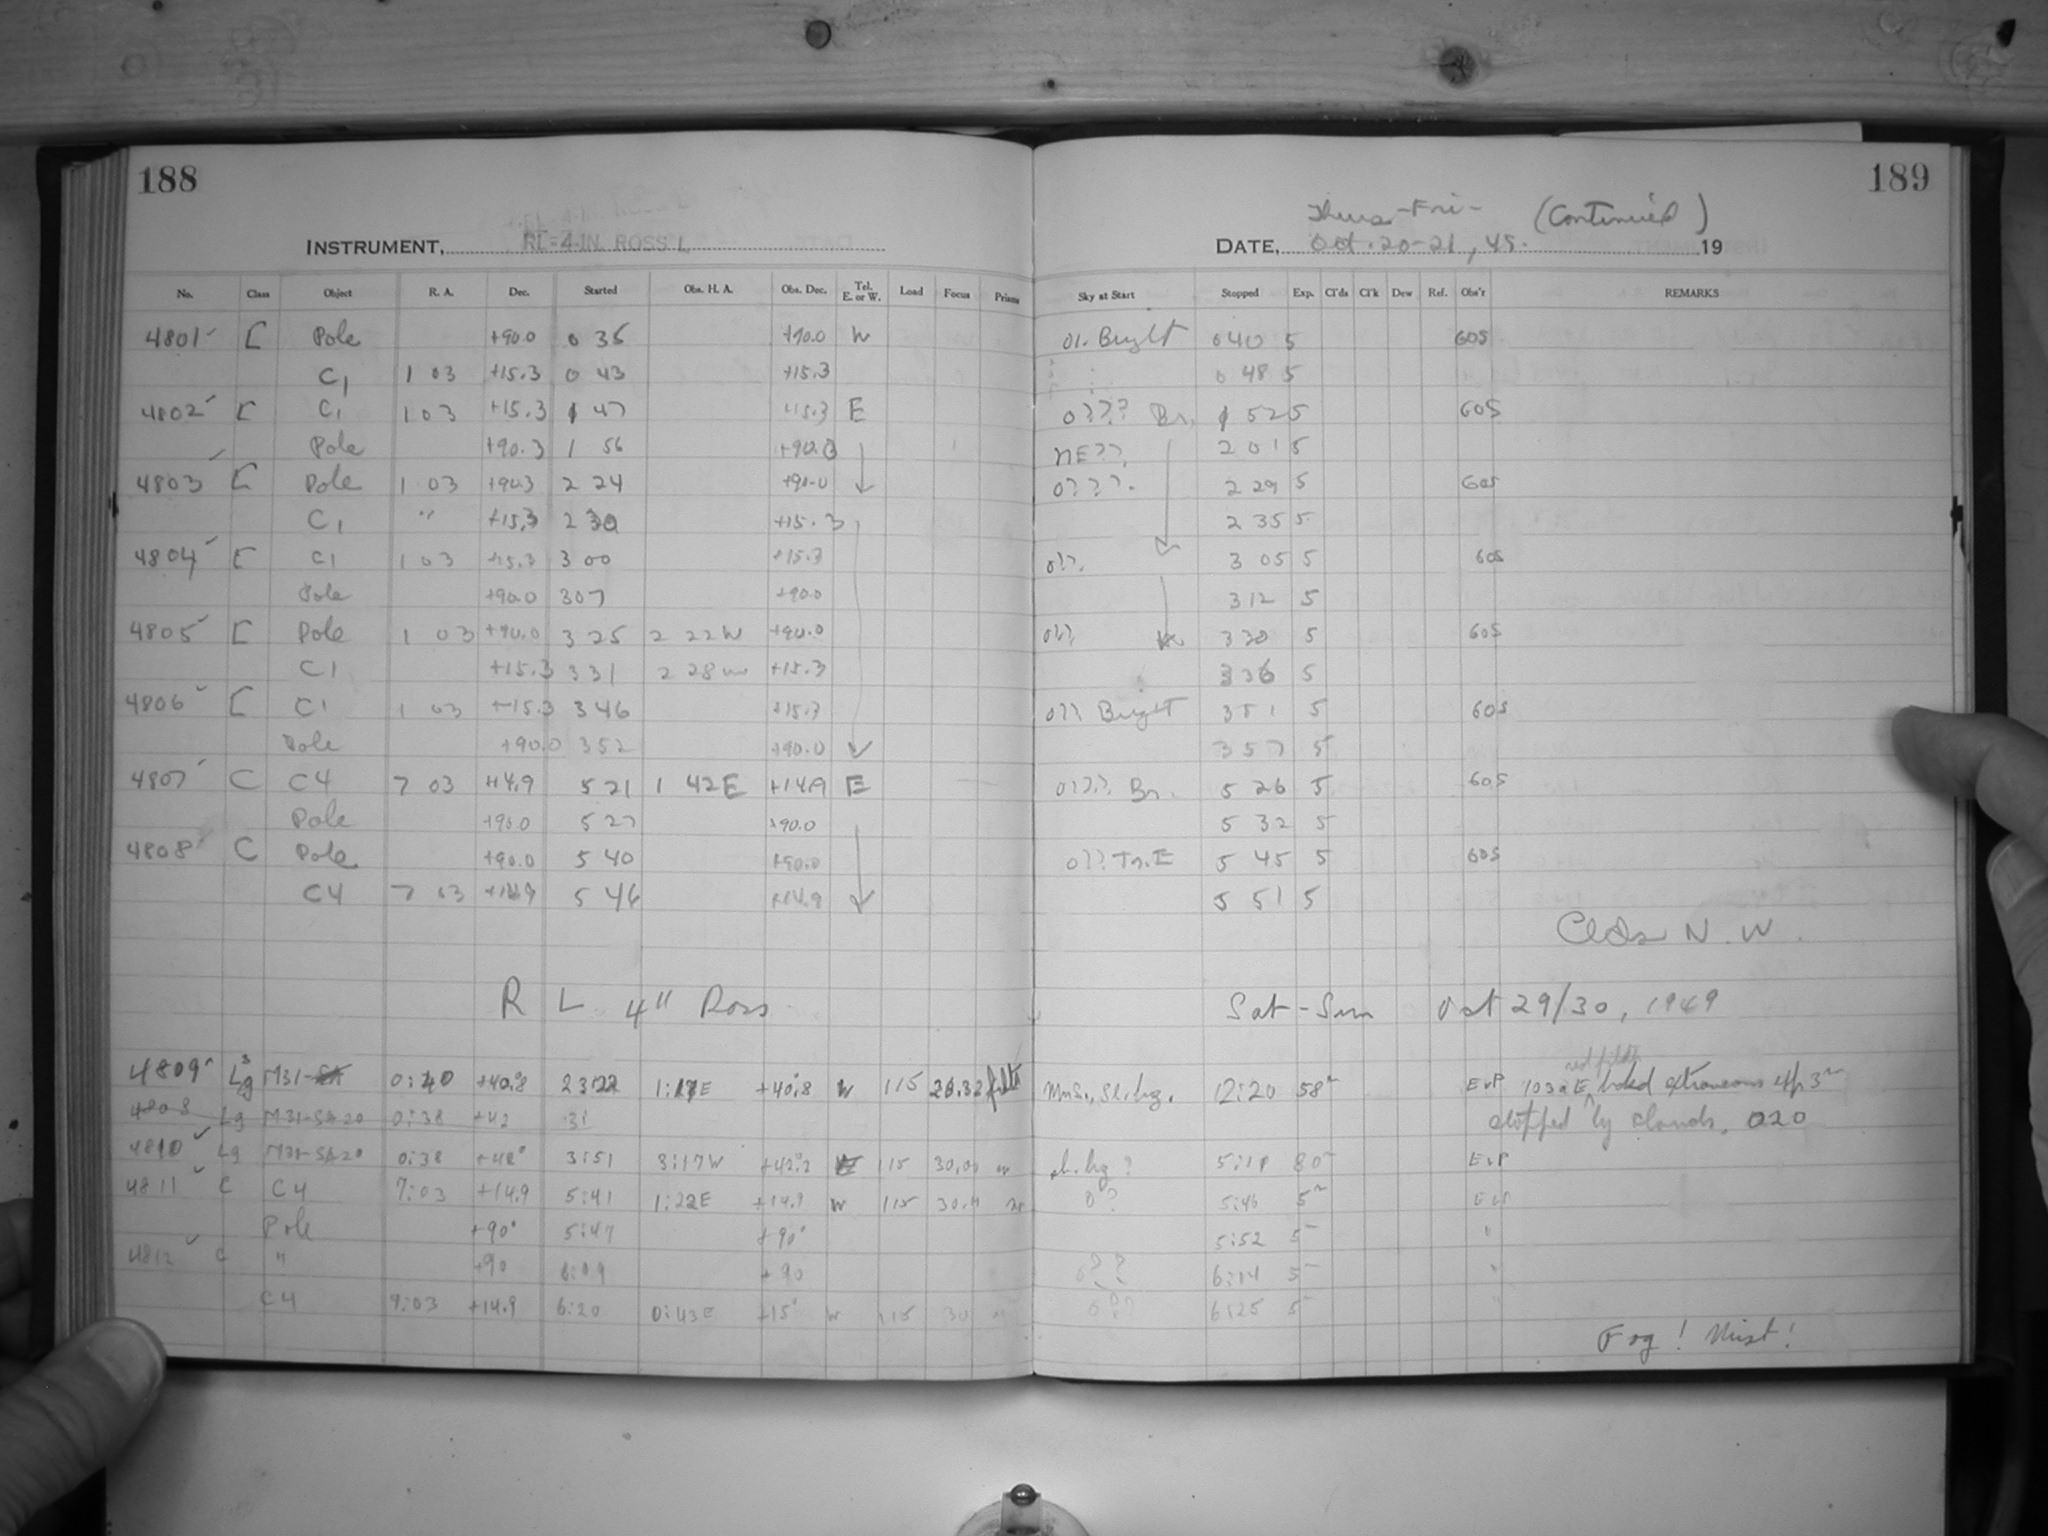 188
INSTRUMENT, RL=4-IN. ROSS L
No. Class Object R. A. Dec. Started Obs. H. A. Obs. Dec. Tel. E. or W. Load Focus Prisms
4801 C Pole +90.0 0 35 +90.0 W
C1 1 03 +15.3 0 43 +15.3
4802 C C1 1 03 +15.3 1 47 +15.3 E
Pole +90.3 1 56 +90.0
4803 C Pole 1 03 +90.3 2 24 +90.0
C1 " +15.3 2 30 +15.3
4804 C C1 1 03 +15.3 3 00 +15.3
Pole +90.0 3 07 +90.0
4805 C Pole 1 03 +90.0 3 25 2 22 W +90.0
C1 +15.3 3 31 2 28 W +15.3
4806 C C1 1 03 +15.3 3 46 +15.3
Pole +90.0 3 52 +90.0
4807 C C4 7 03 +14.9 5 21 1 42 E +14.9 E
Pole +90.0 5 27 +90.0
4808 C Pole +90.0 5 40 +90.0
C4 7 03 +14.9 5 46 +14.9
R L 4" Ross
4809 Lg3 M31 0:40 +40.8 23:22 1:17E +40.8 W 115
4808 Lg M31-SA20 0:38 +42 31
4810 Lg M31-SA20 0:38 +42° 3:51 3:17W +42.2 115 30.0
4811 C C4 7:03 +14.9 5:41 1:22E +14.9 W 115 30.
Pole +90° 5:47 +90°
4812 C " +90 6:09 +90
C4 7:03 +14.9 6:20 0:43E +15° W 115 30
189
Thurs-Fri- (Continued)
DATE, Oct. 20-21, 49. 19
Sky at Start Stopped Exp. Cl'ds Cl'k Dew Ref. Obs'r REMARKS
01. Bright 0 40 5 60S
0 48 5
0??? Br. 1 52 5 60S
NE??, 2 01 5
0???. 2 29 5 60S
2 35 5
0??. 3 05 5 60S
3 12 5
0?? 3 30 5 60S
3 36 5
0?? Bright 3 51 5 60S
3 57 5
0???. Br. 5 26 5 60S
5 32 5
0?? Tr. E 5 45 5 60S
5 51 5
Clds N. W.
Sat-Sun Oct 29/30, 1949
Sl. hzg. 12:20 58m EvP 103aE red filter extraneous exp 3m
stopped by clouds. 020
sl. hzg? 80m EvP
0? 5:46 5m EvP
5:52 5m "
0?? 6:14 5m "
0?? 6:25 5m "
Fog! Mist!